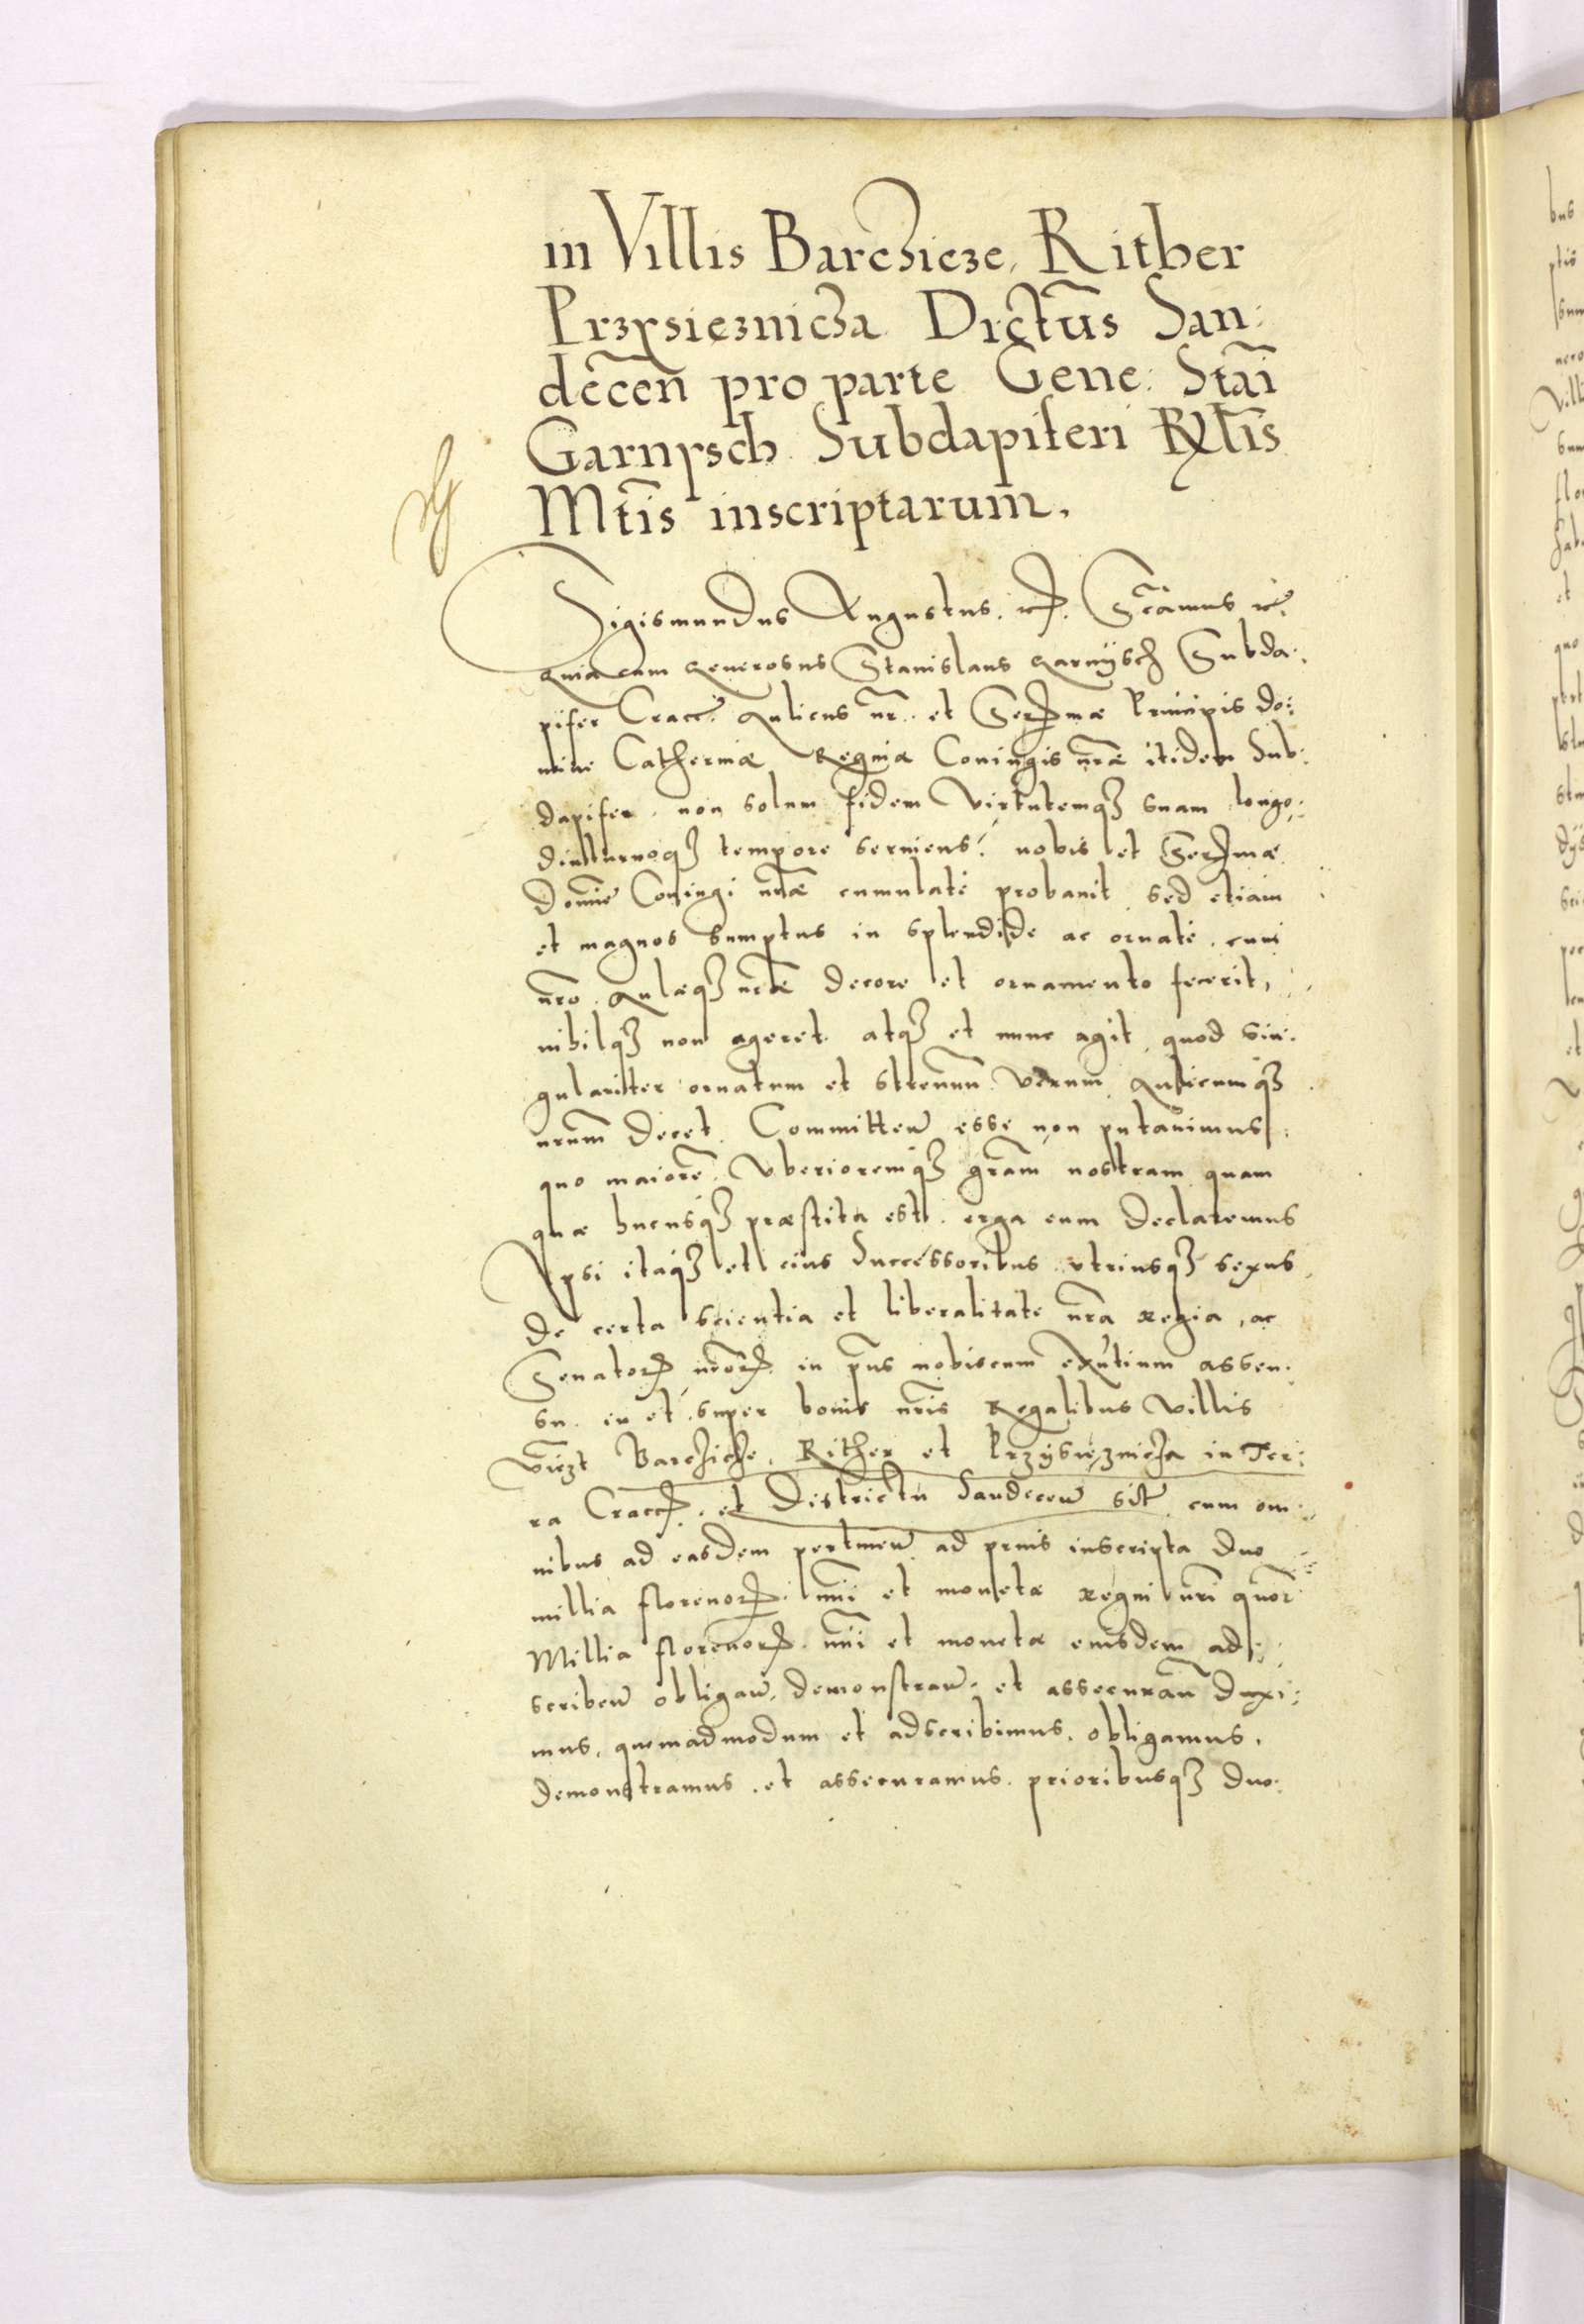 in Villis Barczicze, Rither
Przysieznicza Dictus̃ San:
decen̄ pro parte Gene: Stāi
Garnysch Subdapiferi R̃gtis
Mt̃is inscriptarum.
Sigismundus Augustus. etc. Sc̄amus etc.
quia cum generosus Stanislaus Garnijsch Subda:
pifer Cracc: Aulicus nr̄. et Serꝫmæ Principis do:
minæ Catherinæ Reginæ Coniugis nr̄æ itidem Sub:
dapifer. non solum fidem virtutemqꝫ suam longo:
diuturnoqꝫ tempore seruiens. nobis et Serꝫmæ
Domīe Coniugi nr̄æ cumulatè probauit sed etiam
et magnos Sumptus in splendide ac ornatè. cum
nr̄o. Aulæqꝫ nr̄æ decore et ornamento fecerit,
nihilqꝫ non ageret. atqꝫ et nunc agit, quod sin:
gulariter ornatum et strenuū verum Aulicumqꝫ
nr̄um decet. Committen̄ esse non putauimus
quo maiorē. vberioremqꝫ gr̄am nostram quam
quæ hucusqꝫ præstita est. erga eum declaremus
Ipsi itaqꝫ et eius Successoribus vtriusqꝫ sexus
de certa scientia et liberalitate nr̄a regia, ac
Senatorꝫ nr̄orꝫ in pn̄s nobiscum exn̄tium assen:
su. in et super bonis nr̄is Regalibus villis
vīczt Barczicze, Rither et Przysieznicza in Ter:
ra Craccꝫ. et Districtu Sandecen̄ sit̄ cum om:
nibus ad easdem pertinen̄ ad prius inscripta duo
millia florenorꝫ. nm̄i et monetæ regni nr̄i quor̄
Millia florenorꝫ. nm̄i et monetæ eiusdem ad:
scriben̄ obligan̄, demonstran̄. et assecuran̄ duxi:
mus, quemadmodum et adscribimus, obligamus,
demonstramus. et assecuramus. prioribusqꝫ duo: